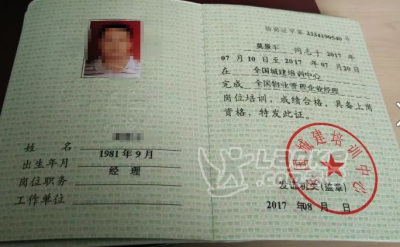 姓 名
出生年月 1981年9月
岗位职务 经 理
工作单位
同志于 2017 年
07 月 10 日至 2017 年 07 月 20 日
在 全国城建培训中心
完成 全国物业管理企业经理
岗位培训，成绩合格，具备上岗
资格，特发此证。
城建培训中心
发证机关(盖章)
2017 年 08 月 日